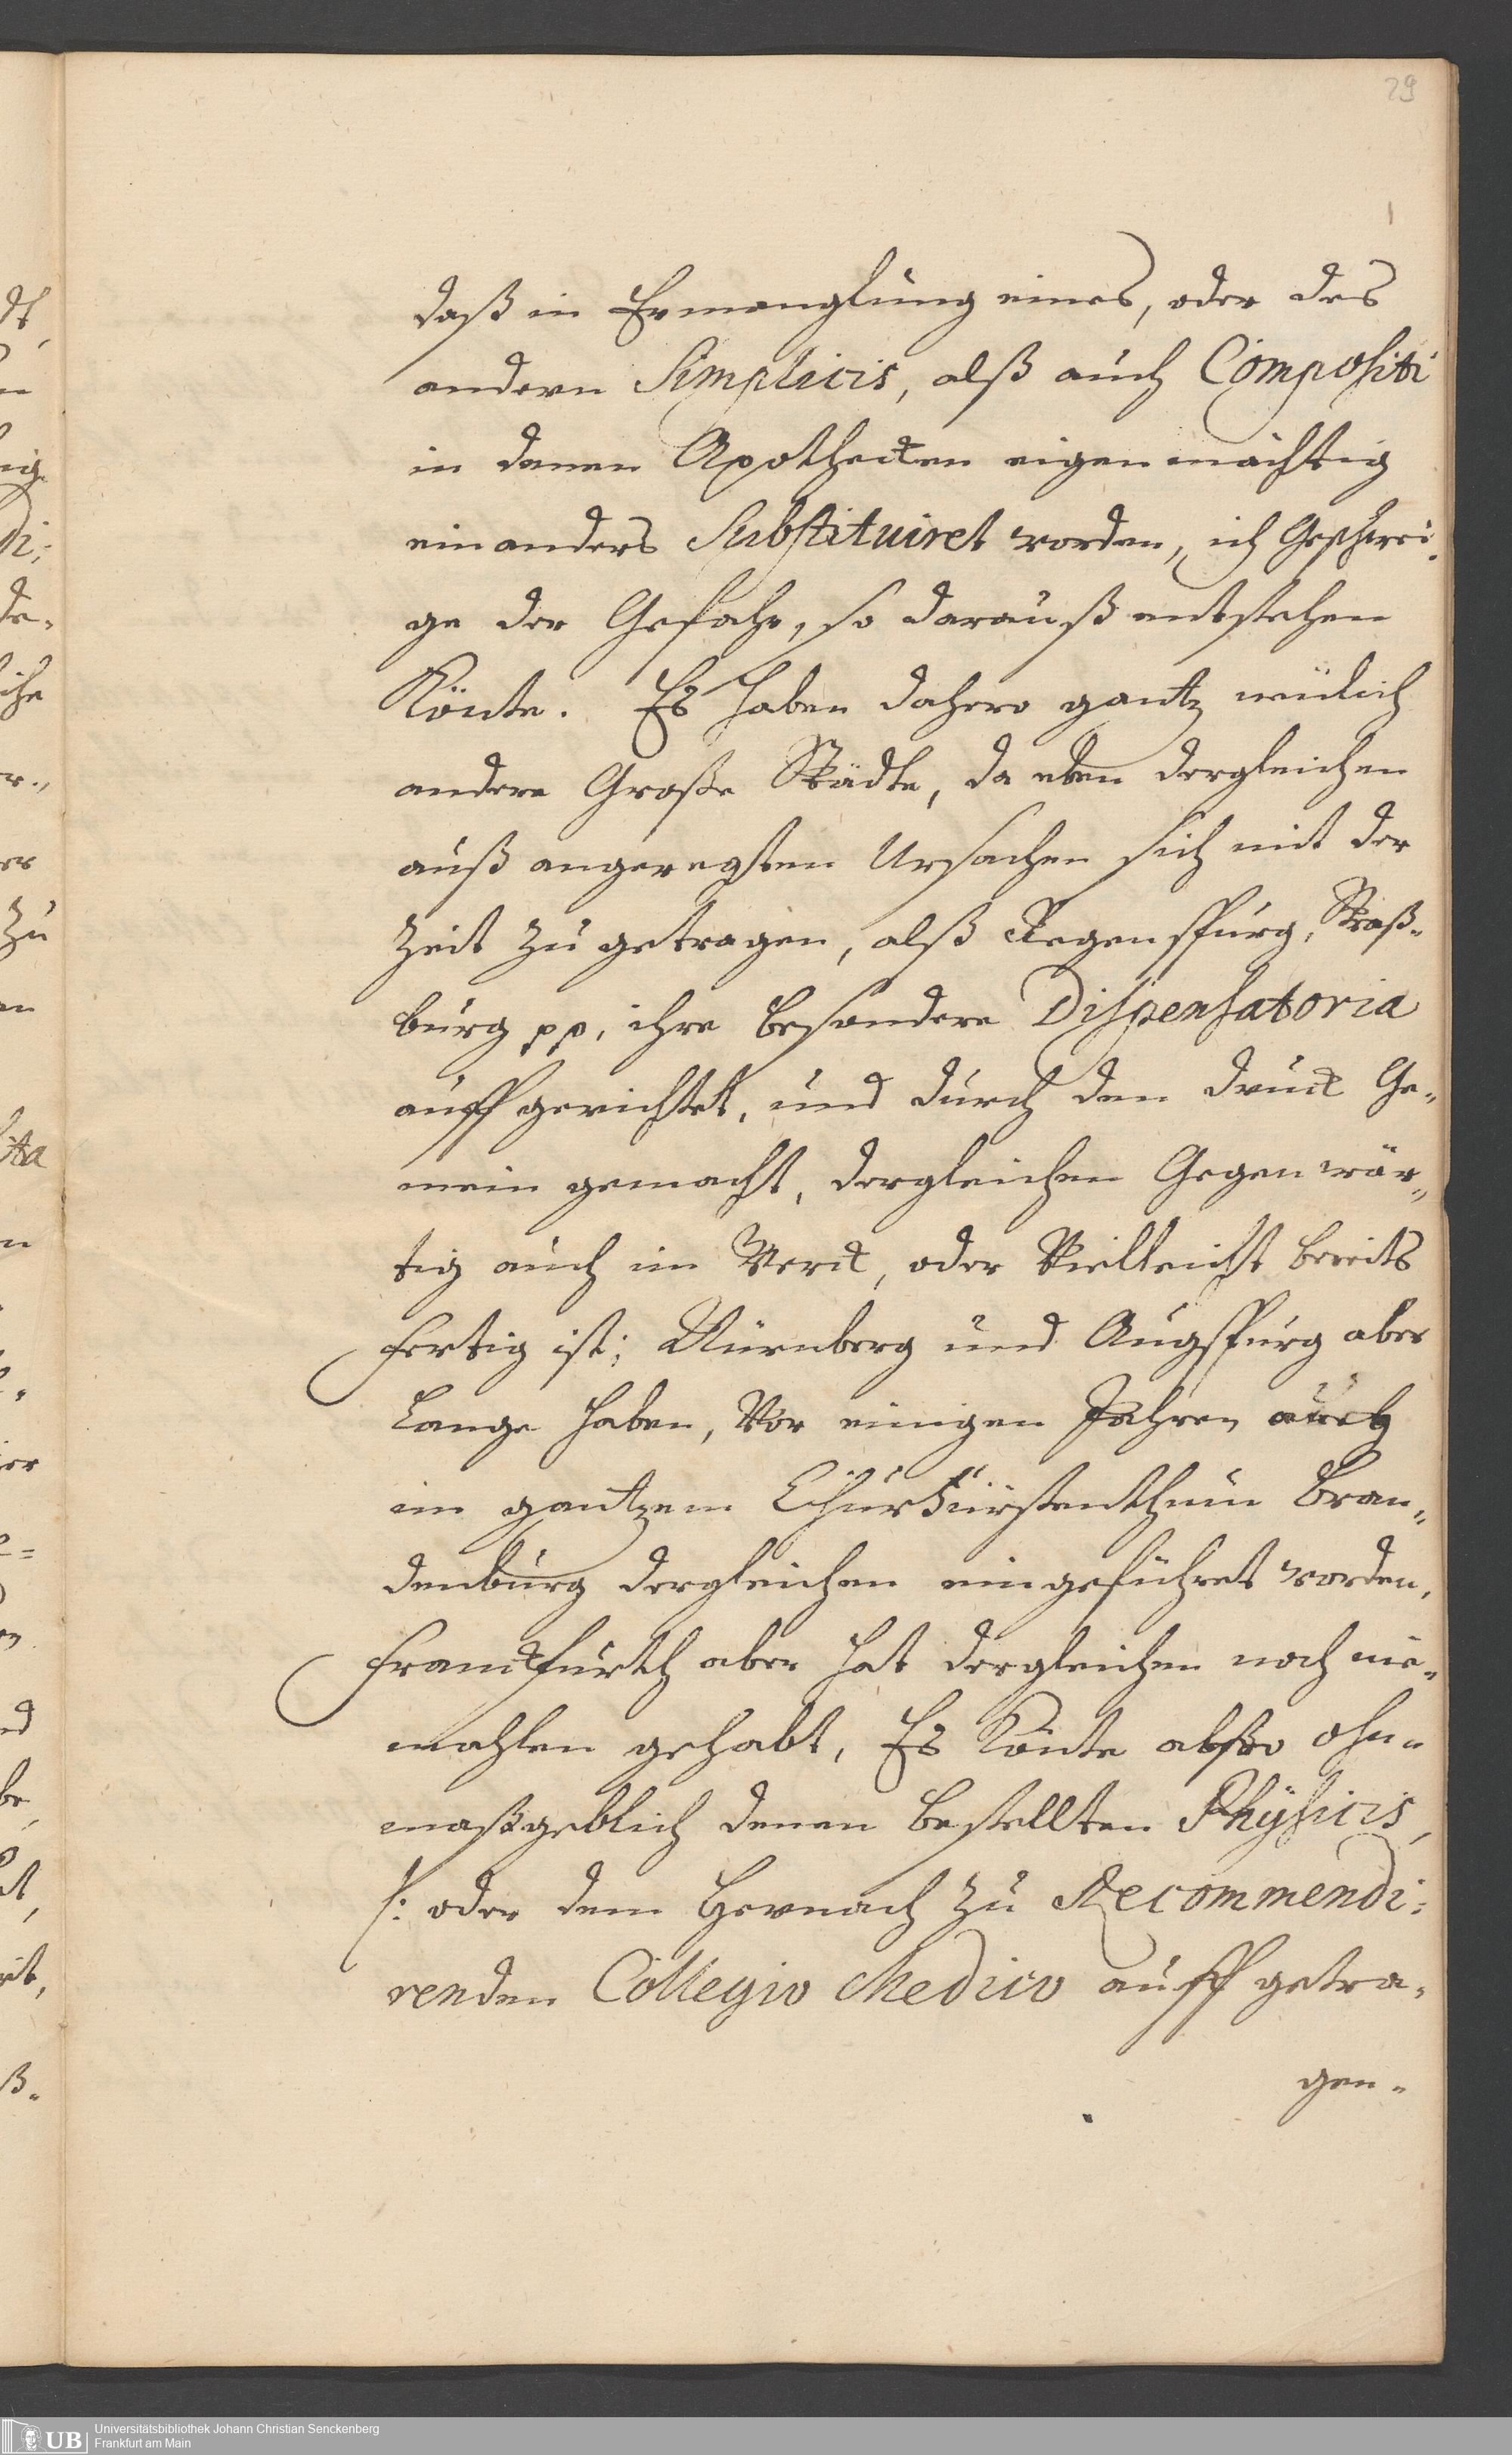 29
daß in Ermanglung eines, oder des
andern Simplicis, alß auch Compositi
in denen Apothecken eigenmächtig
ein anders Substituiret worden, ich Geschwei-
ge der Gefahr, so darauß entstehen
Könte. Es haben dahero gantz neülich
andere Große Städte, da eben dergleichen
auß angeregten Ursachen sich mit der
Zeit zu getragen, alß Regenspurg, Straß-
burg pp, ihre besondere Dispensatoria
auffgerichtet, und durch den druck Ge-
mein gemacht, dergleichen Gegenwär-
tig auch im Werck, oder Vielleicht bereits
fertig ist; Nürnberg und Augspurg aber
Lange haben, Vor einigen Jahren auch
im gantzem Churfürstenthum Bran-
denburg dergleichen eingeführet worden,
Franckfurth aber hat dergleichen noch nie-
mahlen gehabt, Es Könte alßo ohn-
maßgeblich denen bestellten Physicis,
/: oder dem hernach zu Recommendi-
renden Collegio Medico auff getra-
gen-
UB
Universitätsbibliothek Johann Christian Senckenberg
Frankfurt am Main